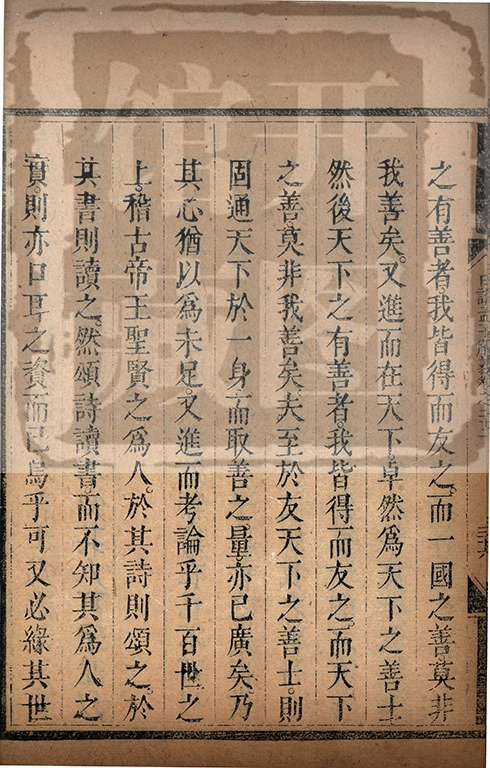 之有善者。我皆得而友之。而一國之善莫非
我善矣。又進而在天下。卓然爲天下之善士
然後天下之有善者。我皆得而友之。而天下
之善莫非我善矣。夫至於友天下之善士。則
固通天下於一身而取善之量。亦已廣矣乃
其心猶以爲未足。又進而考論乎千百世之
上。稽古帝王聖賢之爲人。於其詩則頌之。於
其書則讀之。然頌詩讀書而不知其爲人之
實。則亦口耳之資而已烏乎可又必緣其世